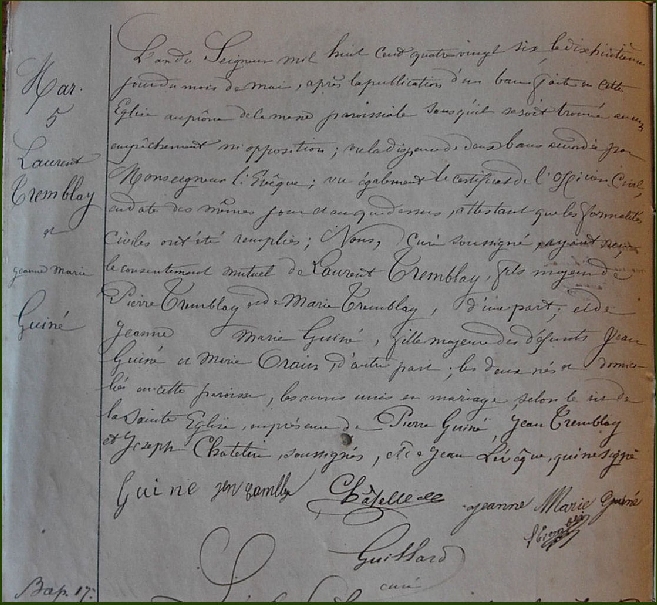 Mar.
5
Laurent
Tremblay
et
jeanne marie
Guiné
L'an du Seigneur mil huit cend quatre vingt six, le dix huitième
jour du mois de mai, après la publication d'un ban faite en cette
Eglise au prône de la messe paroissiale sans qu'il se soit trouvé aucun
empêchement ni opposition; vu la dispense de deux bans accordée par
Monseigneur l'Evêque; vu également le certificat de l'officier Civil,
en date des mêmes jour et an que dessus, attestant que les formalités
Civiles ont été remplies; Nous, curé soussigné ayant reçu
le consentement mutuel de Laurent Tremblay, fils majeur de
Pierre Tremblay et de Marie Tremblay, d'une part; et de
Jeanne Marie Guiné, fille majeure des défunts Jean
Guiné et Marie d'autre part; les deux nés et domici-
liés en cette paroisse, les avons unis en mariage, selon le rit de
la Sainte Eglise, en présence de Pierre Guiné, Jean Tremblay
et Joseph Chatelier, soussignés, et de Jean Lévêque, qui ne signe
Guine jen
jeanne Marie Guiné
Guillard
curé
Bap. 17.